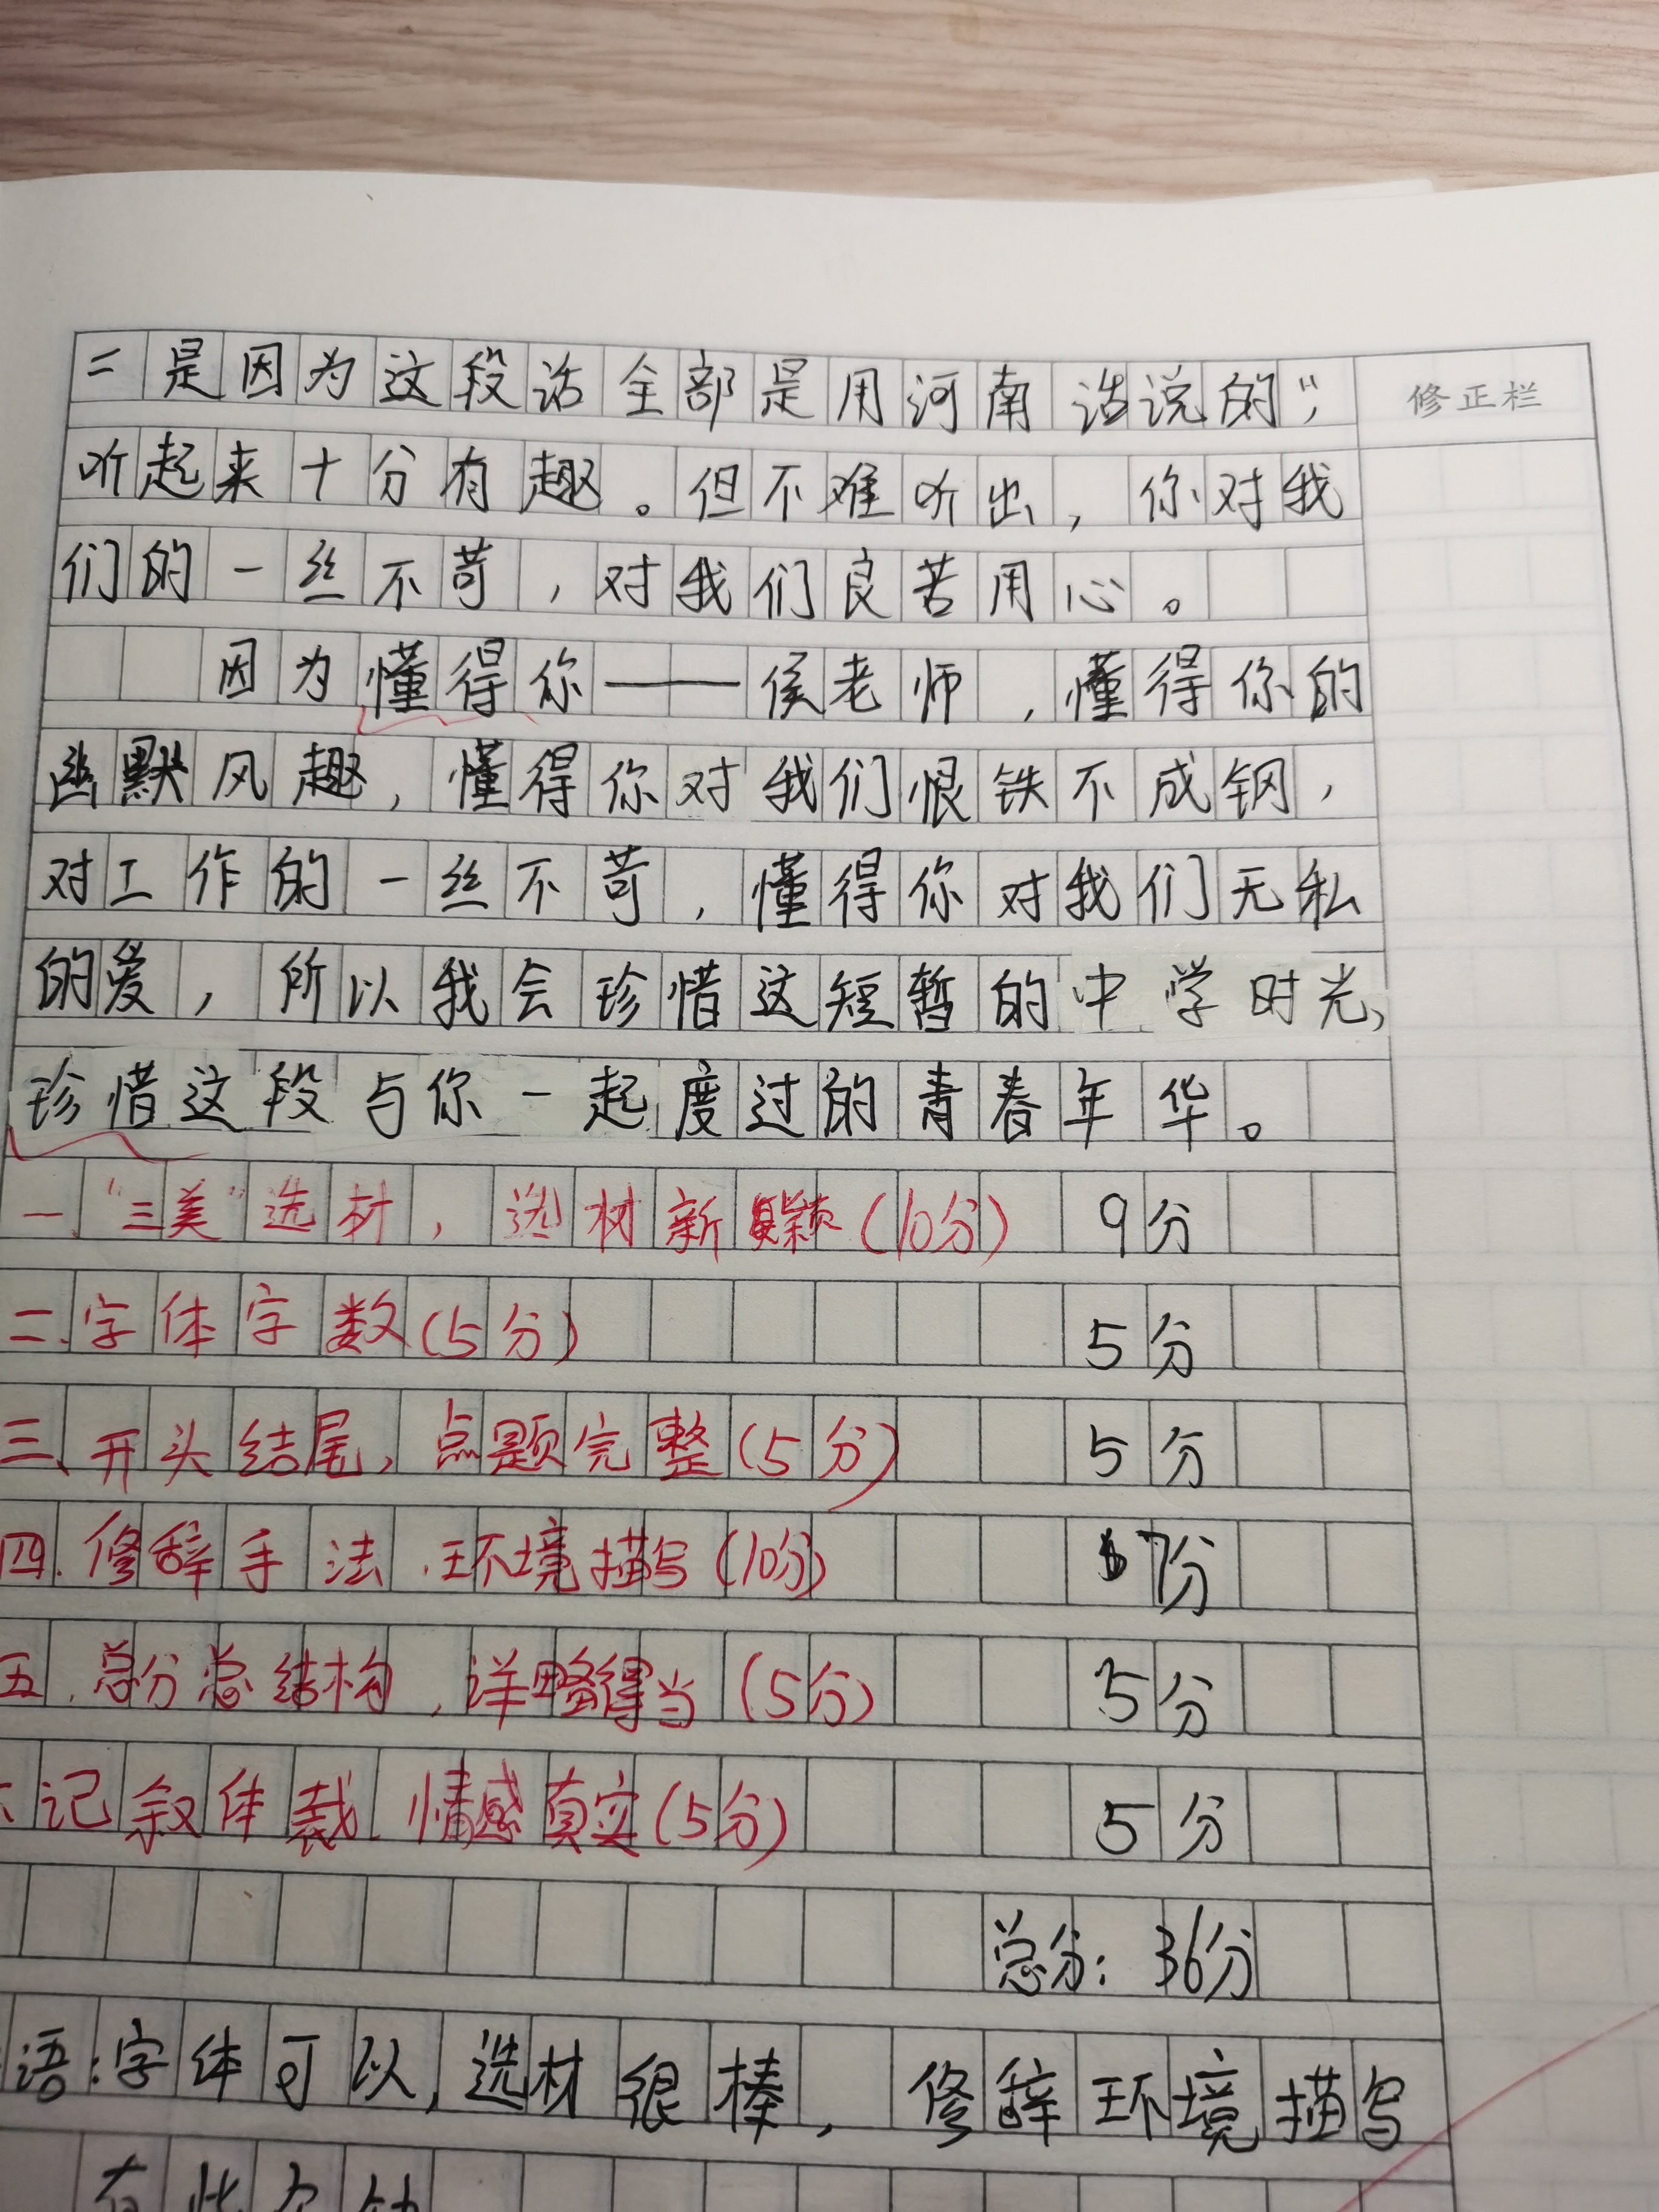 二是因为这段话全部是用河南话说的",
修正栏
听起来十分有趣。但不难听出，你对我
们的一丝不苟，对我们良苦用心。
因为懂得你——侯老师，懂得你的
幽默风趣，懂得你对我们恨铁不成钢，
对工作的一丝不苟，懂得你对我们无私
的爱，所以我会珍惜这短暂的中学时光，
珍惜这段与你一起度过的青春年华。
一."三美"选材，选材新颖(10分) 9分
二.字体字数(5分) 5分
三、开头结尾，点题完整(5分) 5分
四.修辞手法.环境描写(10分) 7分
五.总分总结构，详略得当(5分) 5分
记叙体裁.情感真实(5分) 5分
总分：36分
语：字体可以，选材很棒，修辞环境描写